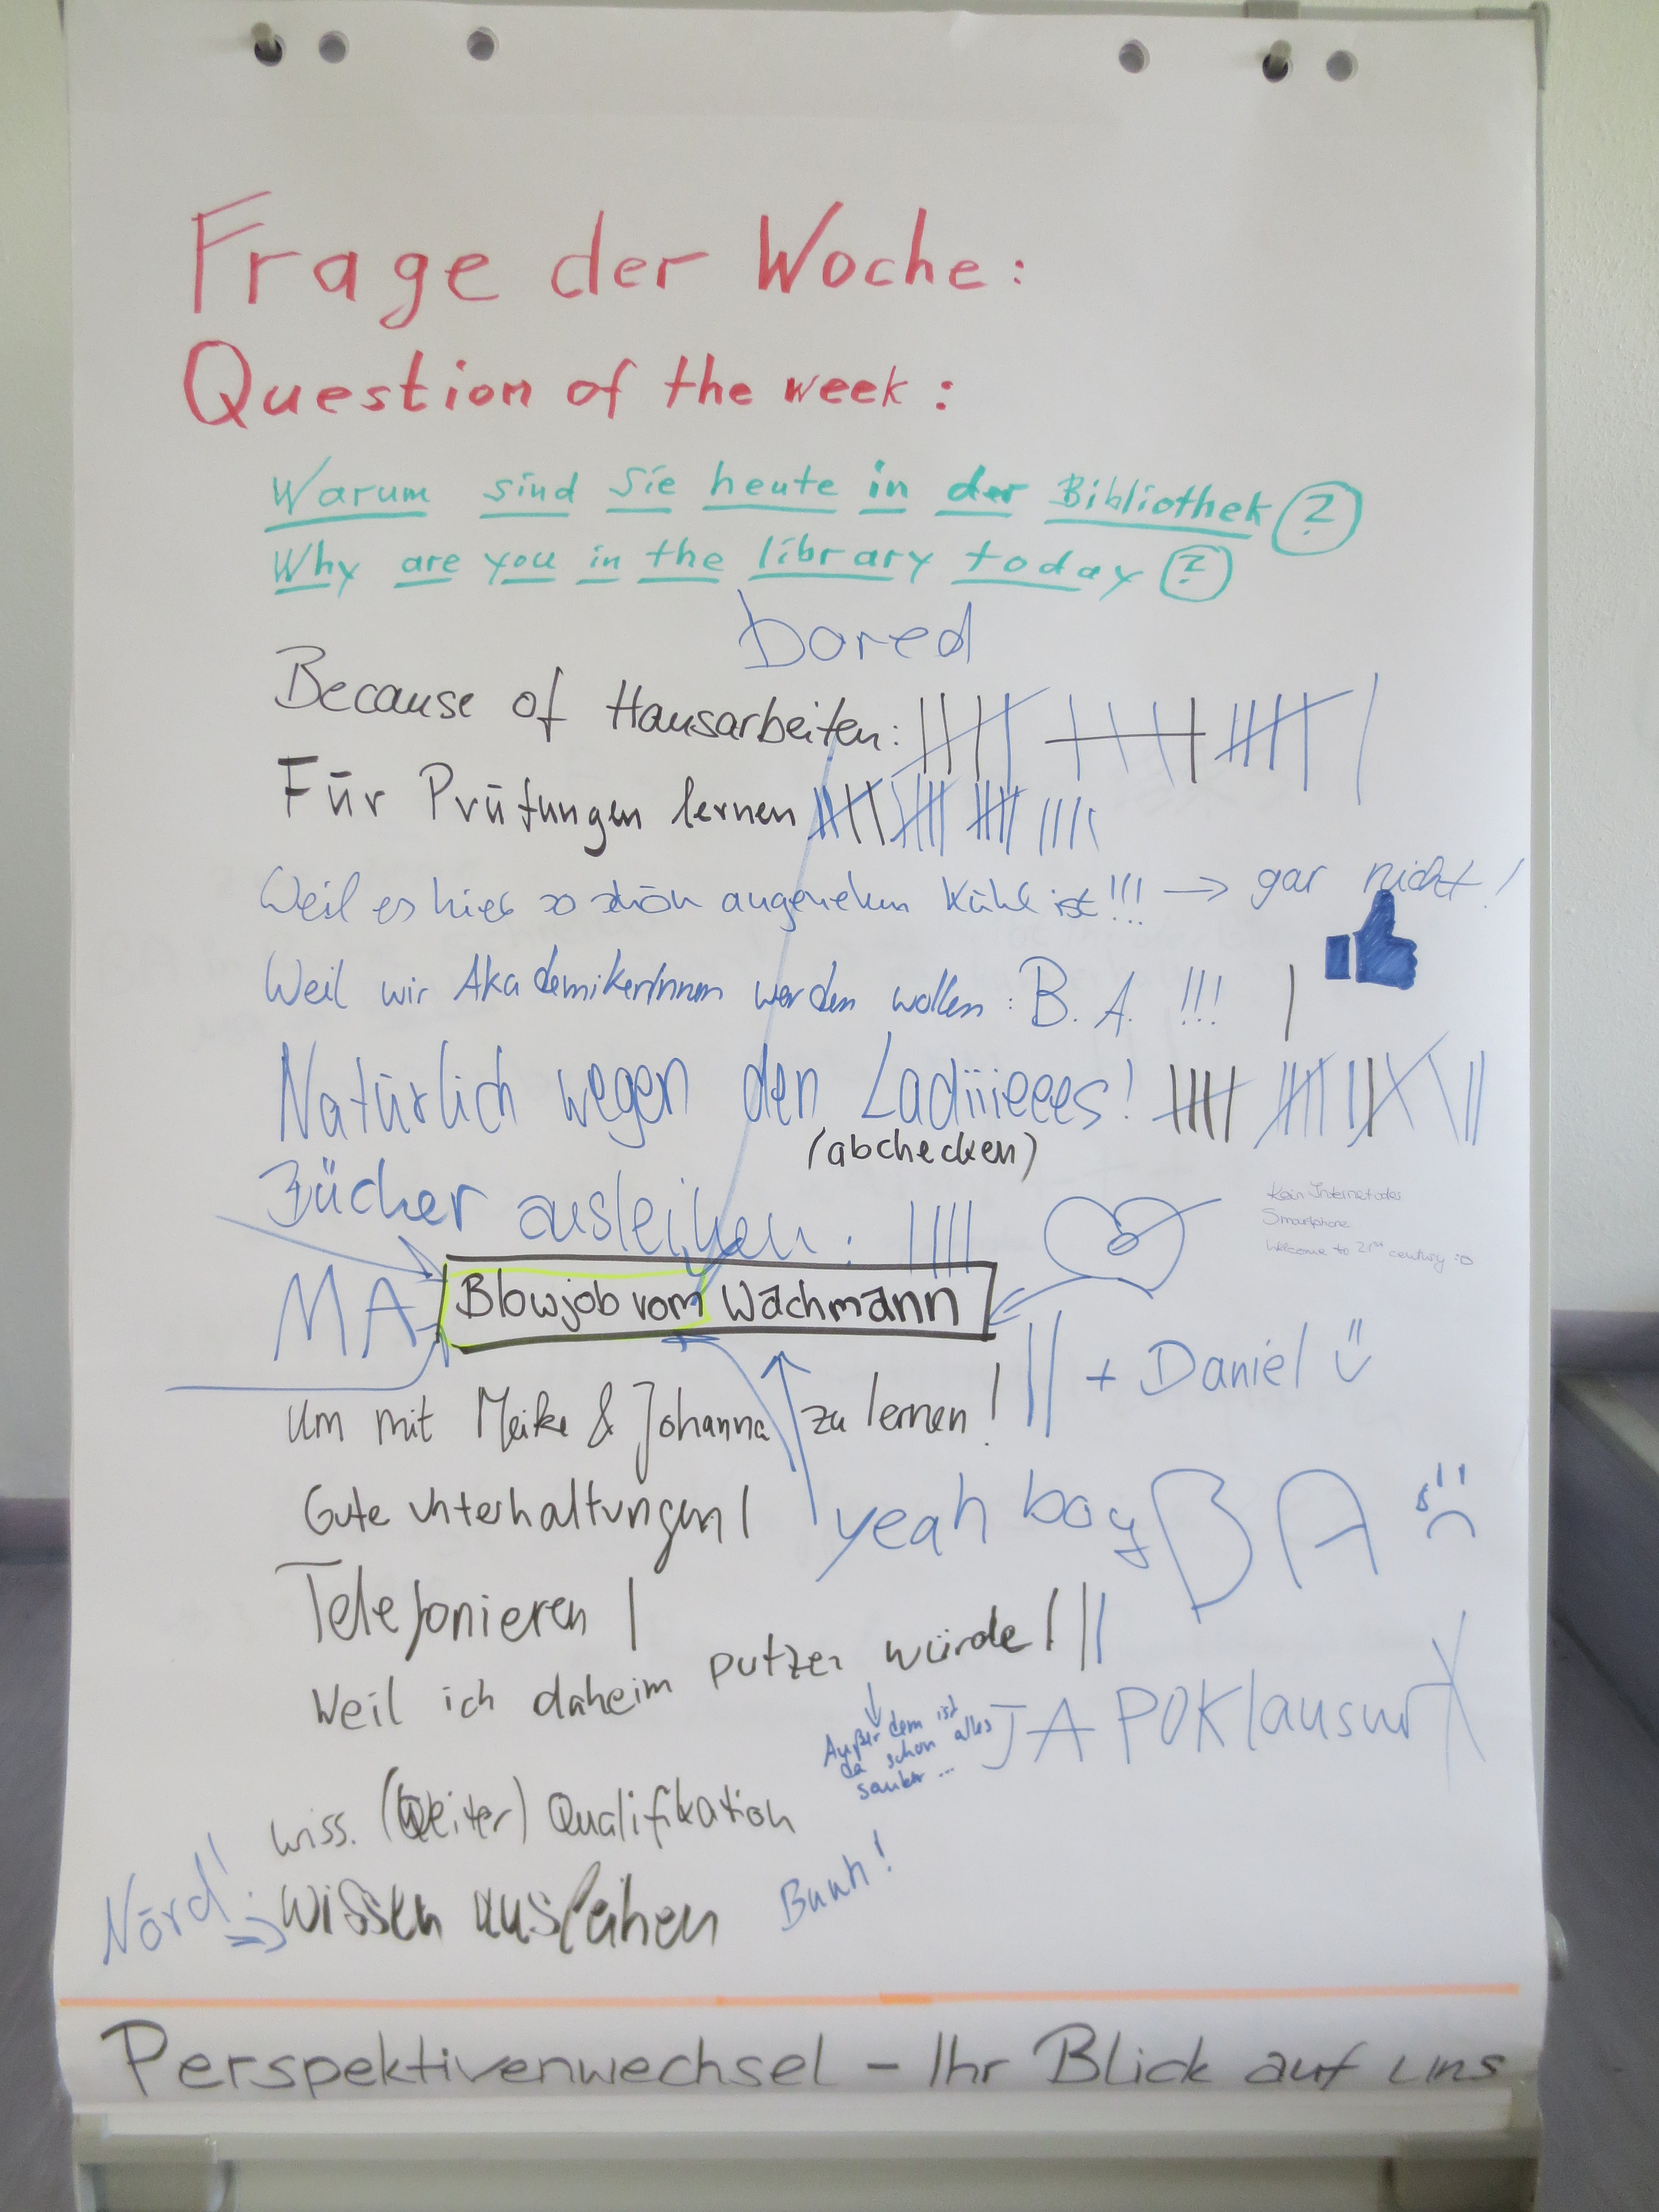 Frage der Woche:
Question of the week:
Warum sind Sie heute in der Bibliothek?
Why are you in the library today?
bored
Because of Hausarbeiten:
Für Prüfungen lernen
Weil es hier so schön angenehm kühl ist!!! → gar nicht!
Weil wir AkademikerInnen werden wollen: B. A. !!!
Natürlich wegen den Ladiiieeees!
(abchecken)
Bücher ausleihen:
Kein Internet oder
Smartphone
Welcome to 21st century :D
MA
Blowjob vom Wachmann
+ Daniel
Um mit Meike & Johanna zu lernen!
Gute Unterhaltungen
yeah boy
BA
Telefonieren
Weil ich daheim putzen würde
Außerdem ist
da schon alles
sauber ...
JA POKlausur
wiss. (Weiter) Qualifikation
Nörd!
Wissen ausleihen
Buuh!
Perspektivenwechsel – Ihr Blick auf uns